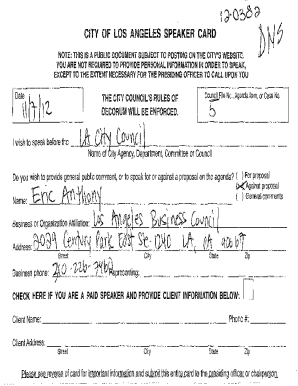 12-0382
DNS
CITY OF LOS ANGELES SPEAKER CARD
NOTE: THIS IS A PUBLIC DOCUMENT SUBJECT TO POSTING ON THE CITY'S WEBSITE.
YOU ARE NOT REQUIRED TO PROVIDE PERSONAL INFORMATION IN ORDER TO SPEAK,
EXCEPT TO THE EXTENT NECESSARY FOR THE PRESIDING OFFICER TO CALL UPON YOU
Date
11/7/12
THE CITY COUNCIL'S RULES OF
DECORUM WILL BE ENFORCED.
Council File No., Agenda Item, or Case No.
5
I wish to speak before the LA City Council
Name of City Agency, Department, Committee or Council
Do you wish to provide general public comment, or to speak for or against a proposal on the agenda? ( ) For proposal
(X) Against proposal
( ) General comments
Name: Eric Anthony
Business or Organization Affiliation: Los Angeles Business Council
Address: 2029 Century Park East Ste. 1240 LA, CA 90067
Street City State Zip
Business phone: 310-226-7460 Representing:
CHECK HERE IF YOU ARE A PAID SPEAKER AND PROVIDE CLIENT INFORMATION BELOW:
Client Name: Phone #:
Client Address:
Street City State Zip
Please see reverse of card for important information and submit this entire card to the presiding officer or chairperson.